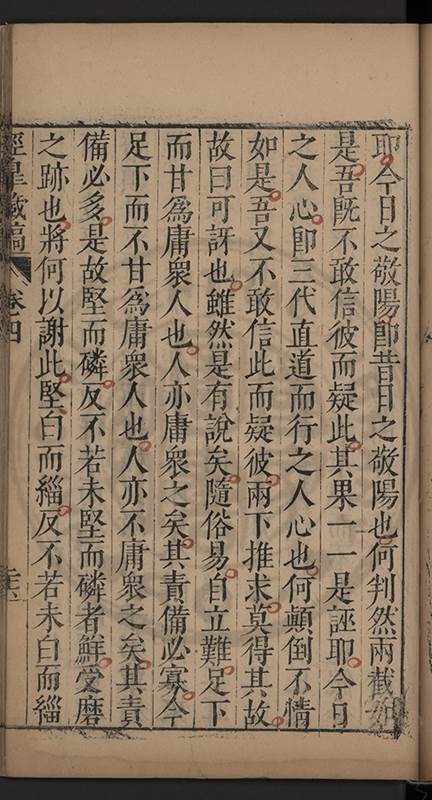 耶今日之敬陽卽昔日之敬陽也何判然兩截如
是吾旣不敢信彼而疑此其果一一是誣耶今日
之人心卽三代直道而行之人心也何顚倒不情
如是吾又不敢信此而疑彼兩下推求莫得其故
故曰可訝也雖然是有說矣隨俗易自立難足下
而甘爲庸衆人也人亦庸衆之矣其責備必寡今
足下而不甘爲庸衆人也人亦不庸衆之矣其責
備必多是故堅而磷反不若未堅而磷者鮮受磨
之跡也將何以謝此堅白而緇反不若未白而緇
涇皐藏稿 卷四